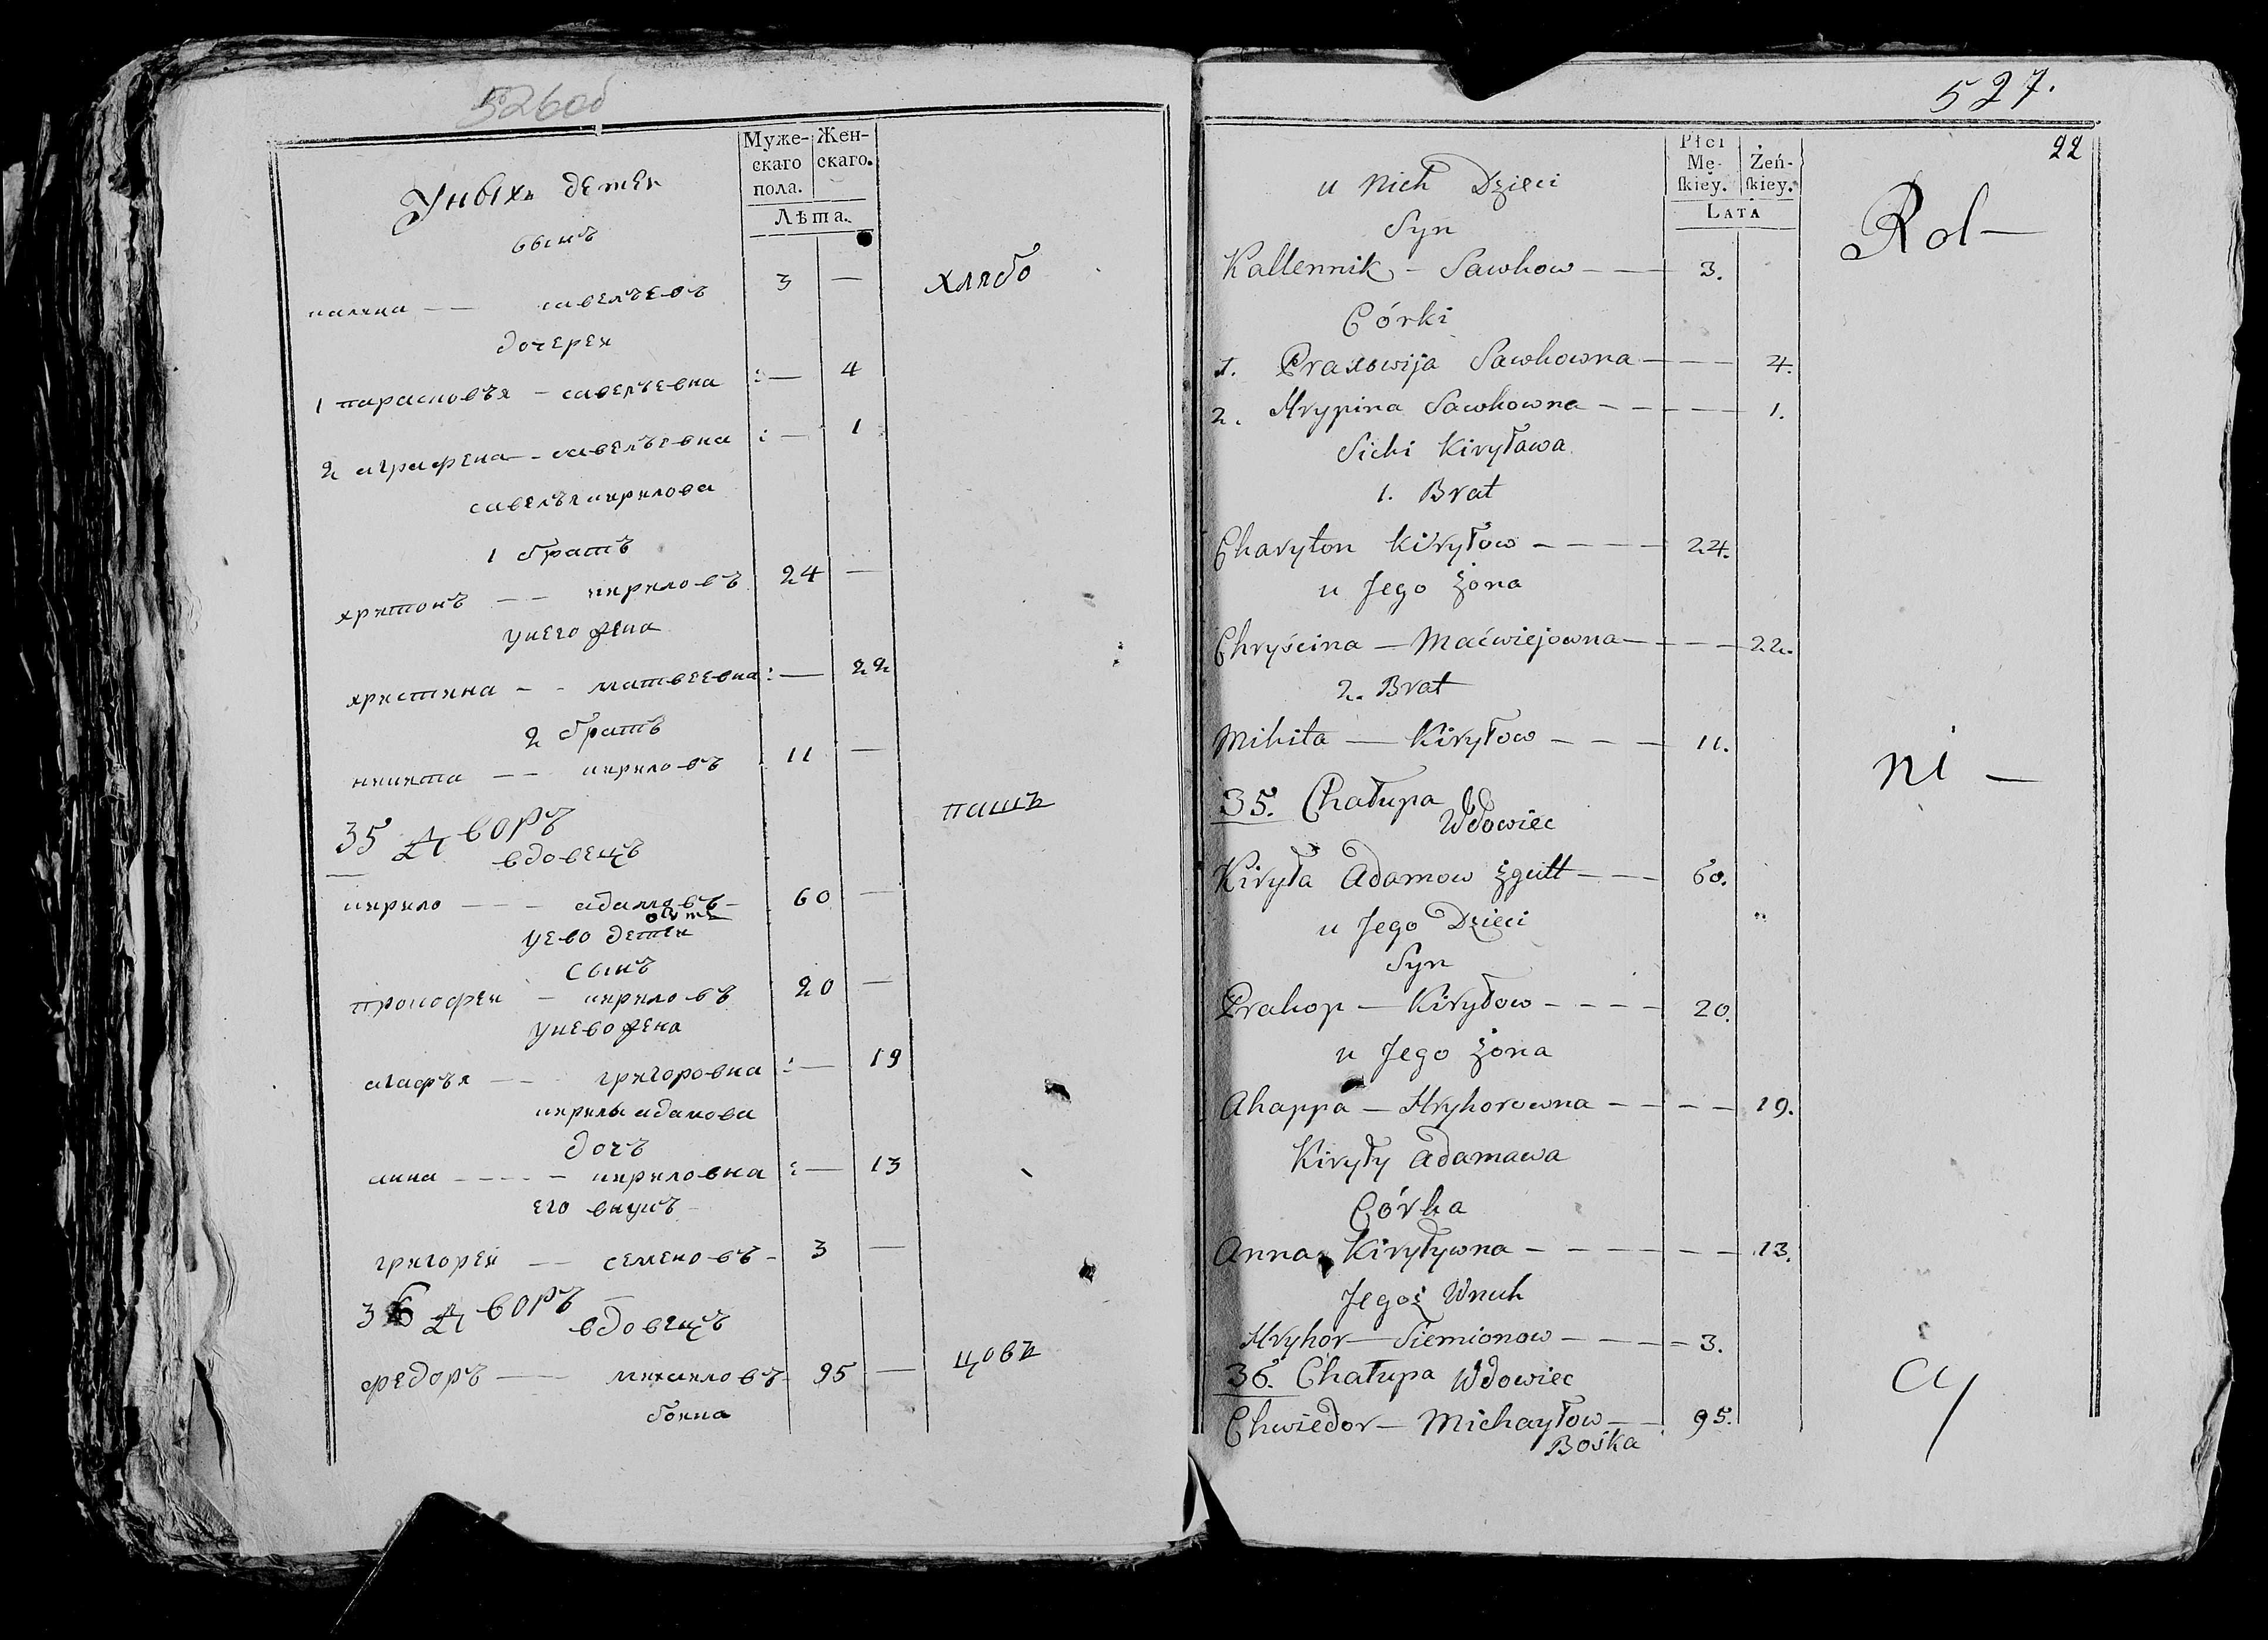 526об
Муже-скаго пола. Жен-скаго.
Лѣта.
Уныхъ детеи
сынъ
савельевъ 3 —
хлябо
дочереи
1 парасковья — савельевна : — 4
2 аграфена — савельевна : — 1
савелья кирилова
1 братъ
харитонъ — — кириловъ 24 —
унего жена
христина - - матвеевна : — 22
2 братъ
никита — — кириловъ 11 —
паш
35 дворъ
вдовецъ
кирило — — - адамовъ - 60 —
уево детеи
сынъ
прокофеи - кириловъ 20 —
унево жена
агафья — - григоровна : — 19
кирилы адамова
дочъ
анна - - - - кириловна : — 13
его внукъ
григореи — семеновъ - 3 —
36 дворъ
вдовецъ
федоръ — михаиловъ - 95 —
цовъ
боика
527.
22
Płci Mę-ſkiey. Żeń-ſkiey.
LATA
u Nich Dzieci
Syn
Kallennik - Sawkow — — 3.
Rol —
Córki
1. Praxowija Sawkowna — — — 4.
2. Hrypina Sawkowna - - - - - 1.
Sicki Kiryława
1. Brat
Charyton Kiryłow - - - - 24.
u Jego żona
Chryścina — Maćwiejowna — - - - 22.
2. Brat
Mikita — Kiryłow - - - 11.
ni —
35. Chałupa
Wdowiec
Kiryła Adamow Zgutt - - - 60.
u Jego Dzieci
Syn
Prakop — Kiryłow - - - - 20.
u Jego żona
Ahappa — Hryhorowna - - - - 19.
Kiryły Adamawa
Córka
Anna Kiryływna - - - - - - 13.
Jegoż Wnuk
Hryhor — Siemionow - - - - 3.
36. Chałupa Wdowiec
cy
Chwiedor — Michayłow — - 95.
Boika